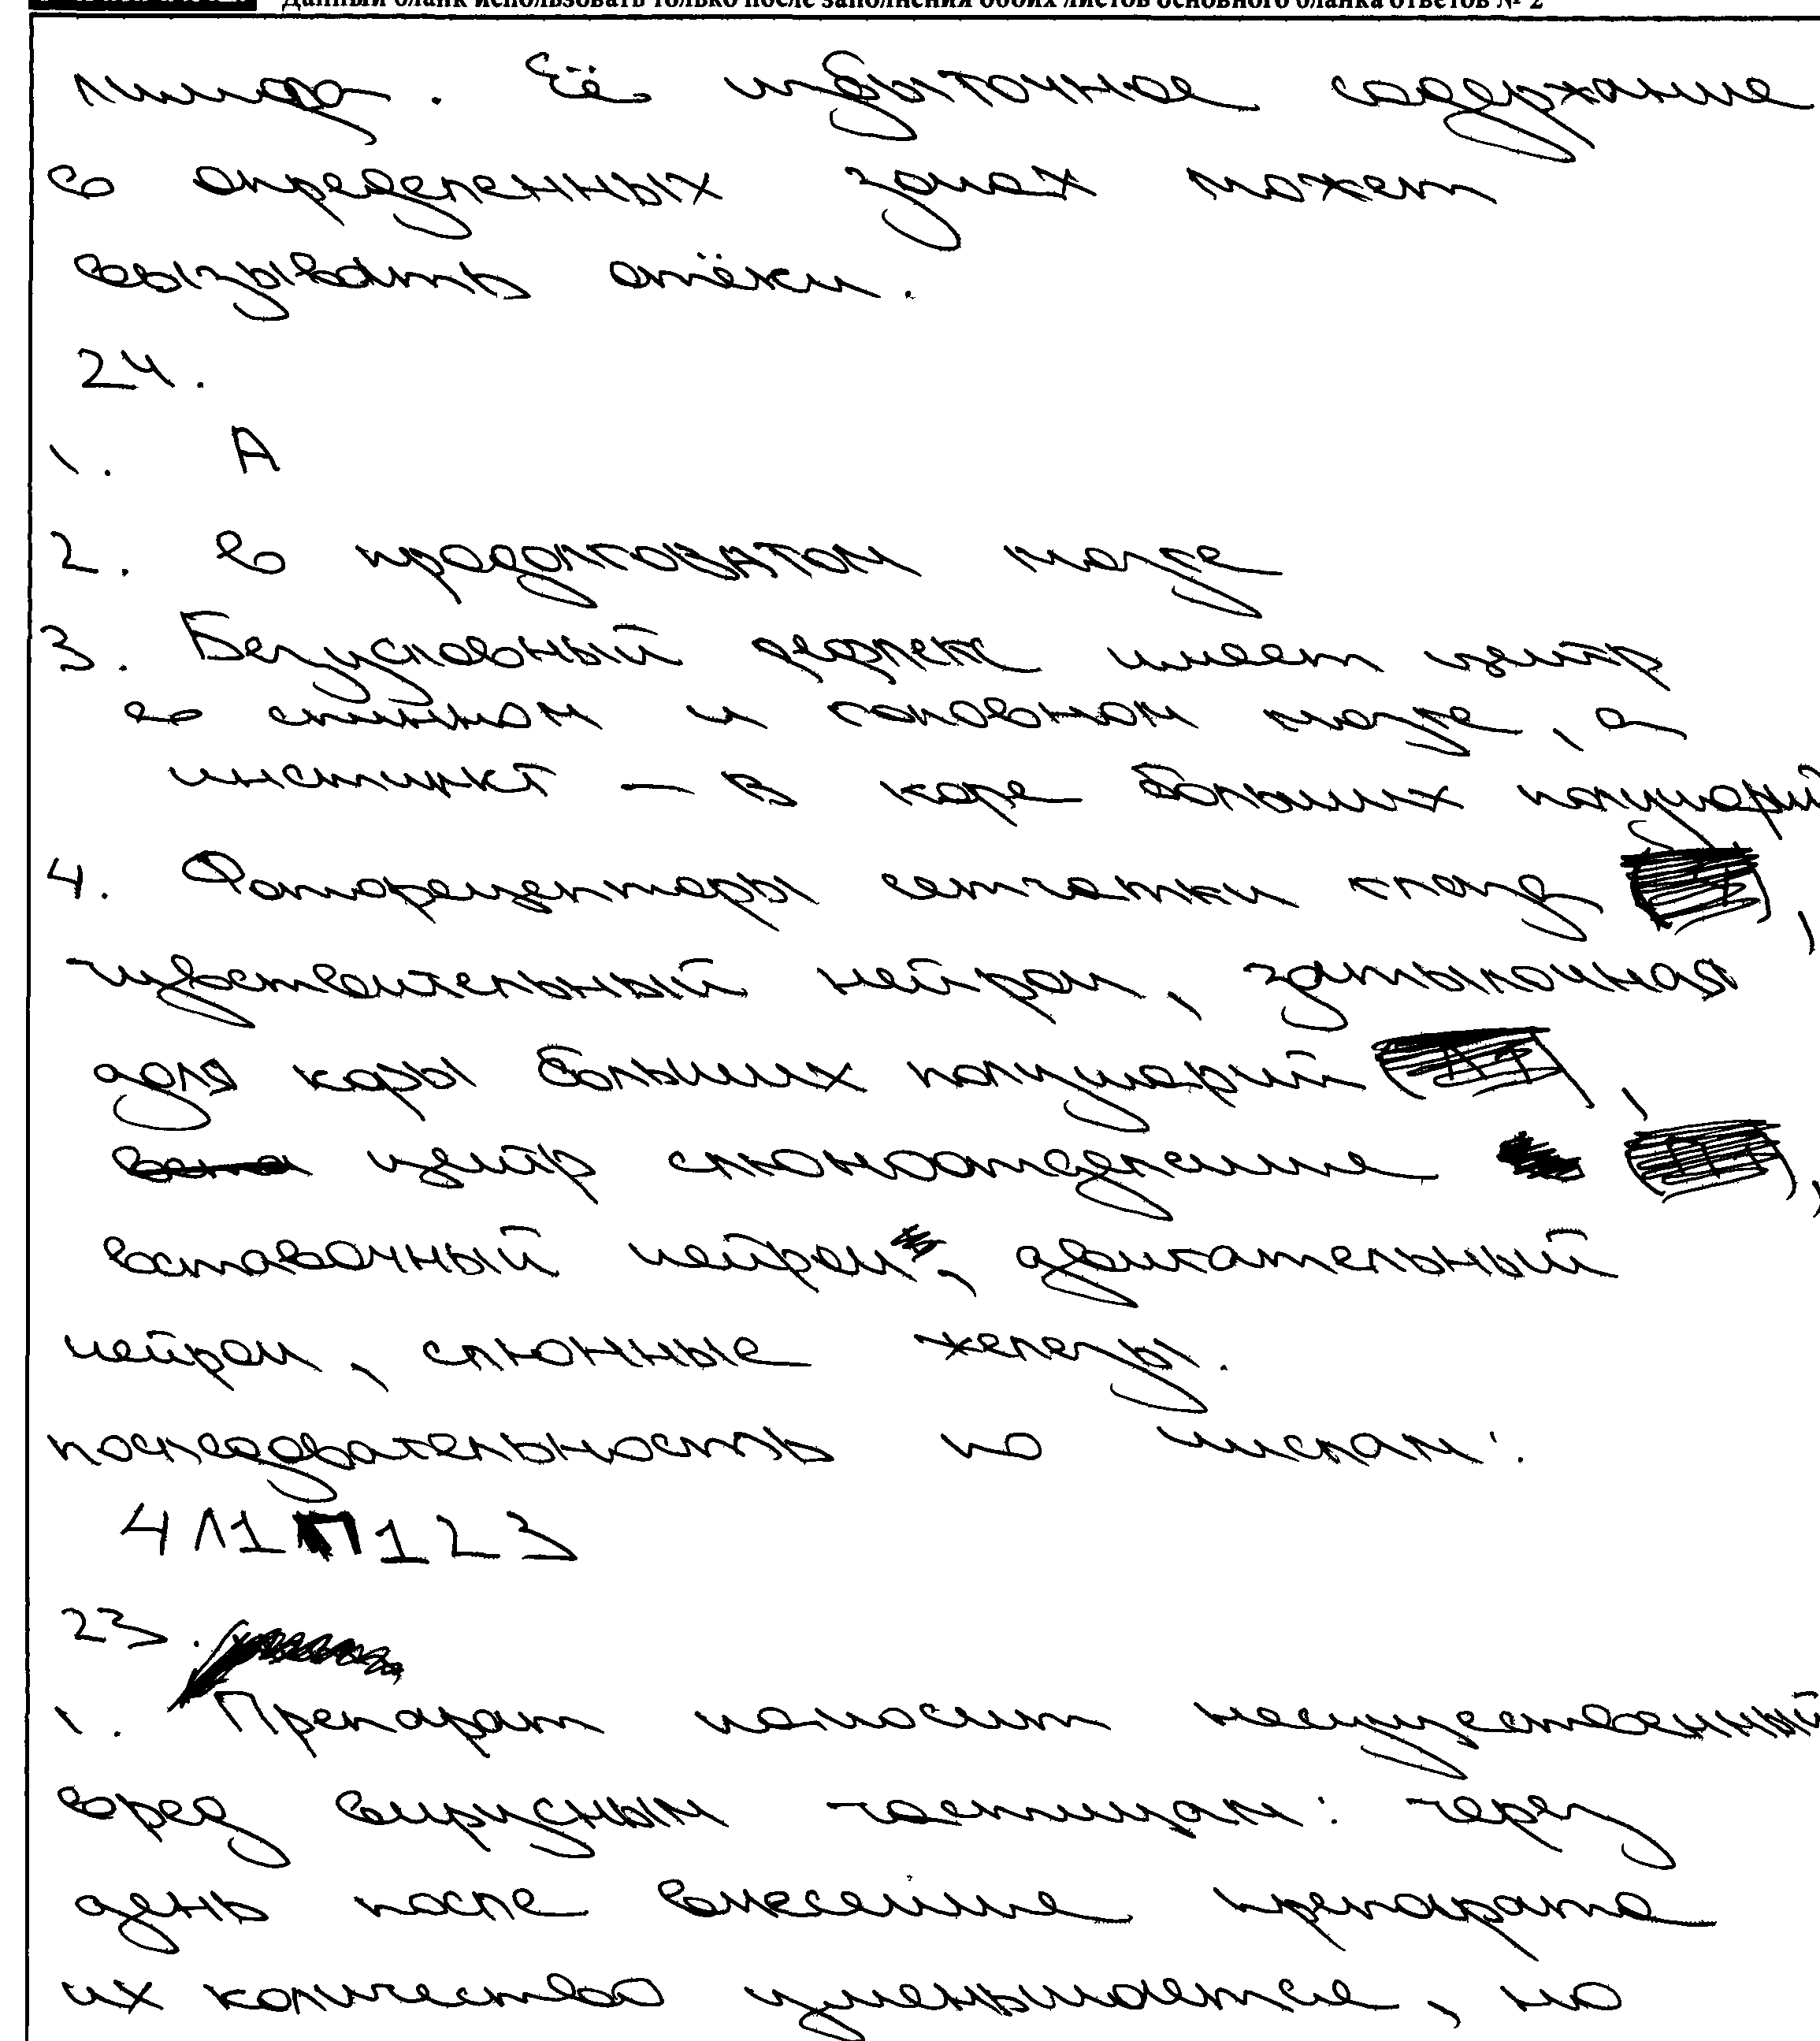 Данный бланк использовать только после заполнения обоих листов основного бланка ответов № 2
лимфа. Её избыточное содержание
в определенных зонах может
вызывать отёки.
24.
1. А
2. в продолговатом мозге
3. Безусловный рефлекс имеет центр
в спинном и головном мозге, а
инстинкт – в коре больших полушарий
4. Фоторецепторы сетчатки глаз ,
чувствительный нейрон, затылочная
доля коры больших полушарий ,
центр слюноотделение ,
вставочный нейрон, двигательный
нейрон, слюнные железы.
последовательность по числам:
4Л1П123
23.
1. Препарат наносит несущественный
вред вирусным частицам: через
день после внесение препарата
их количество уменьшается, но